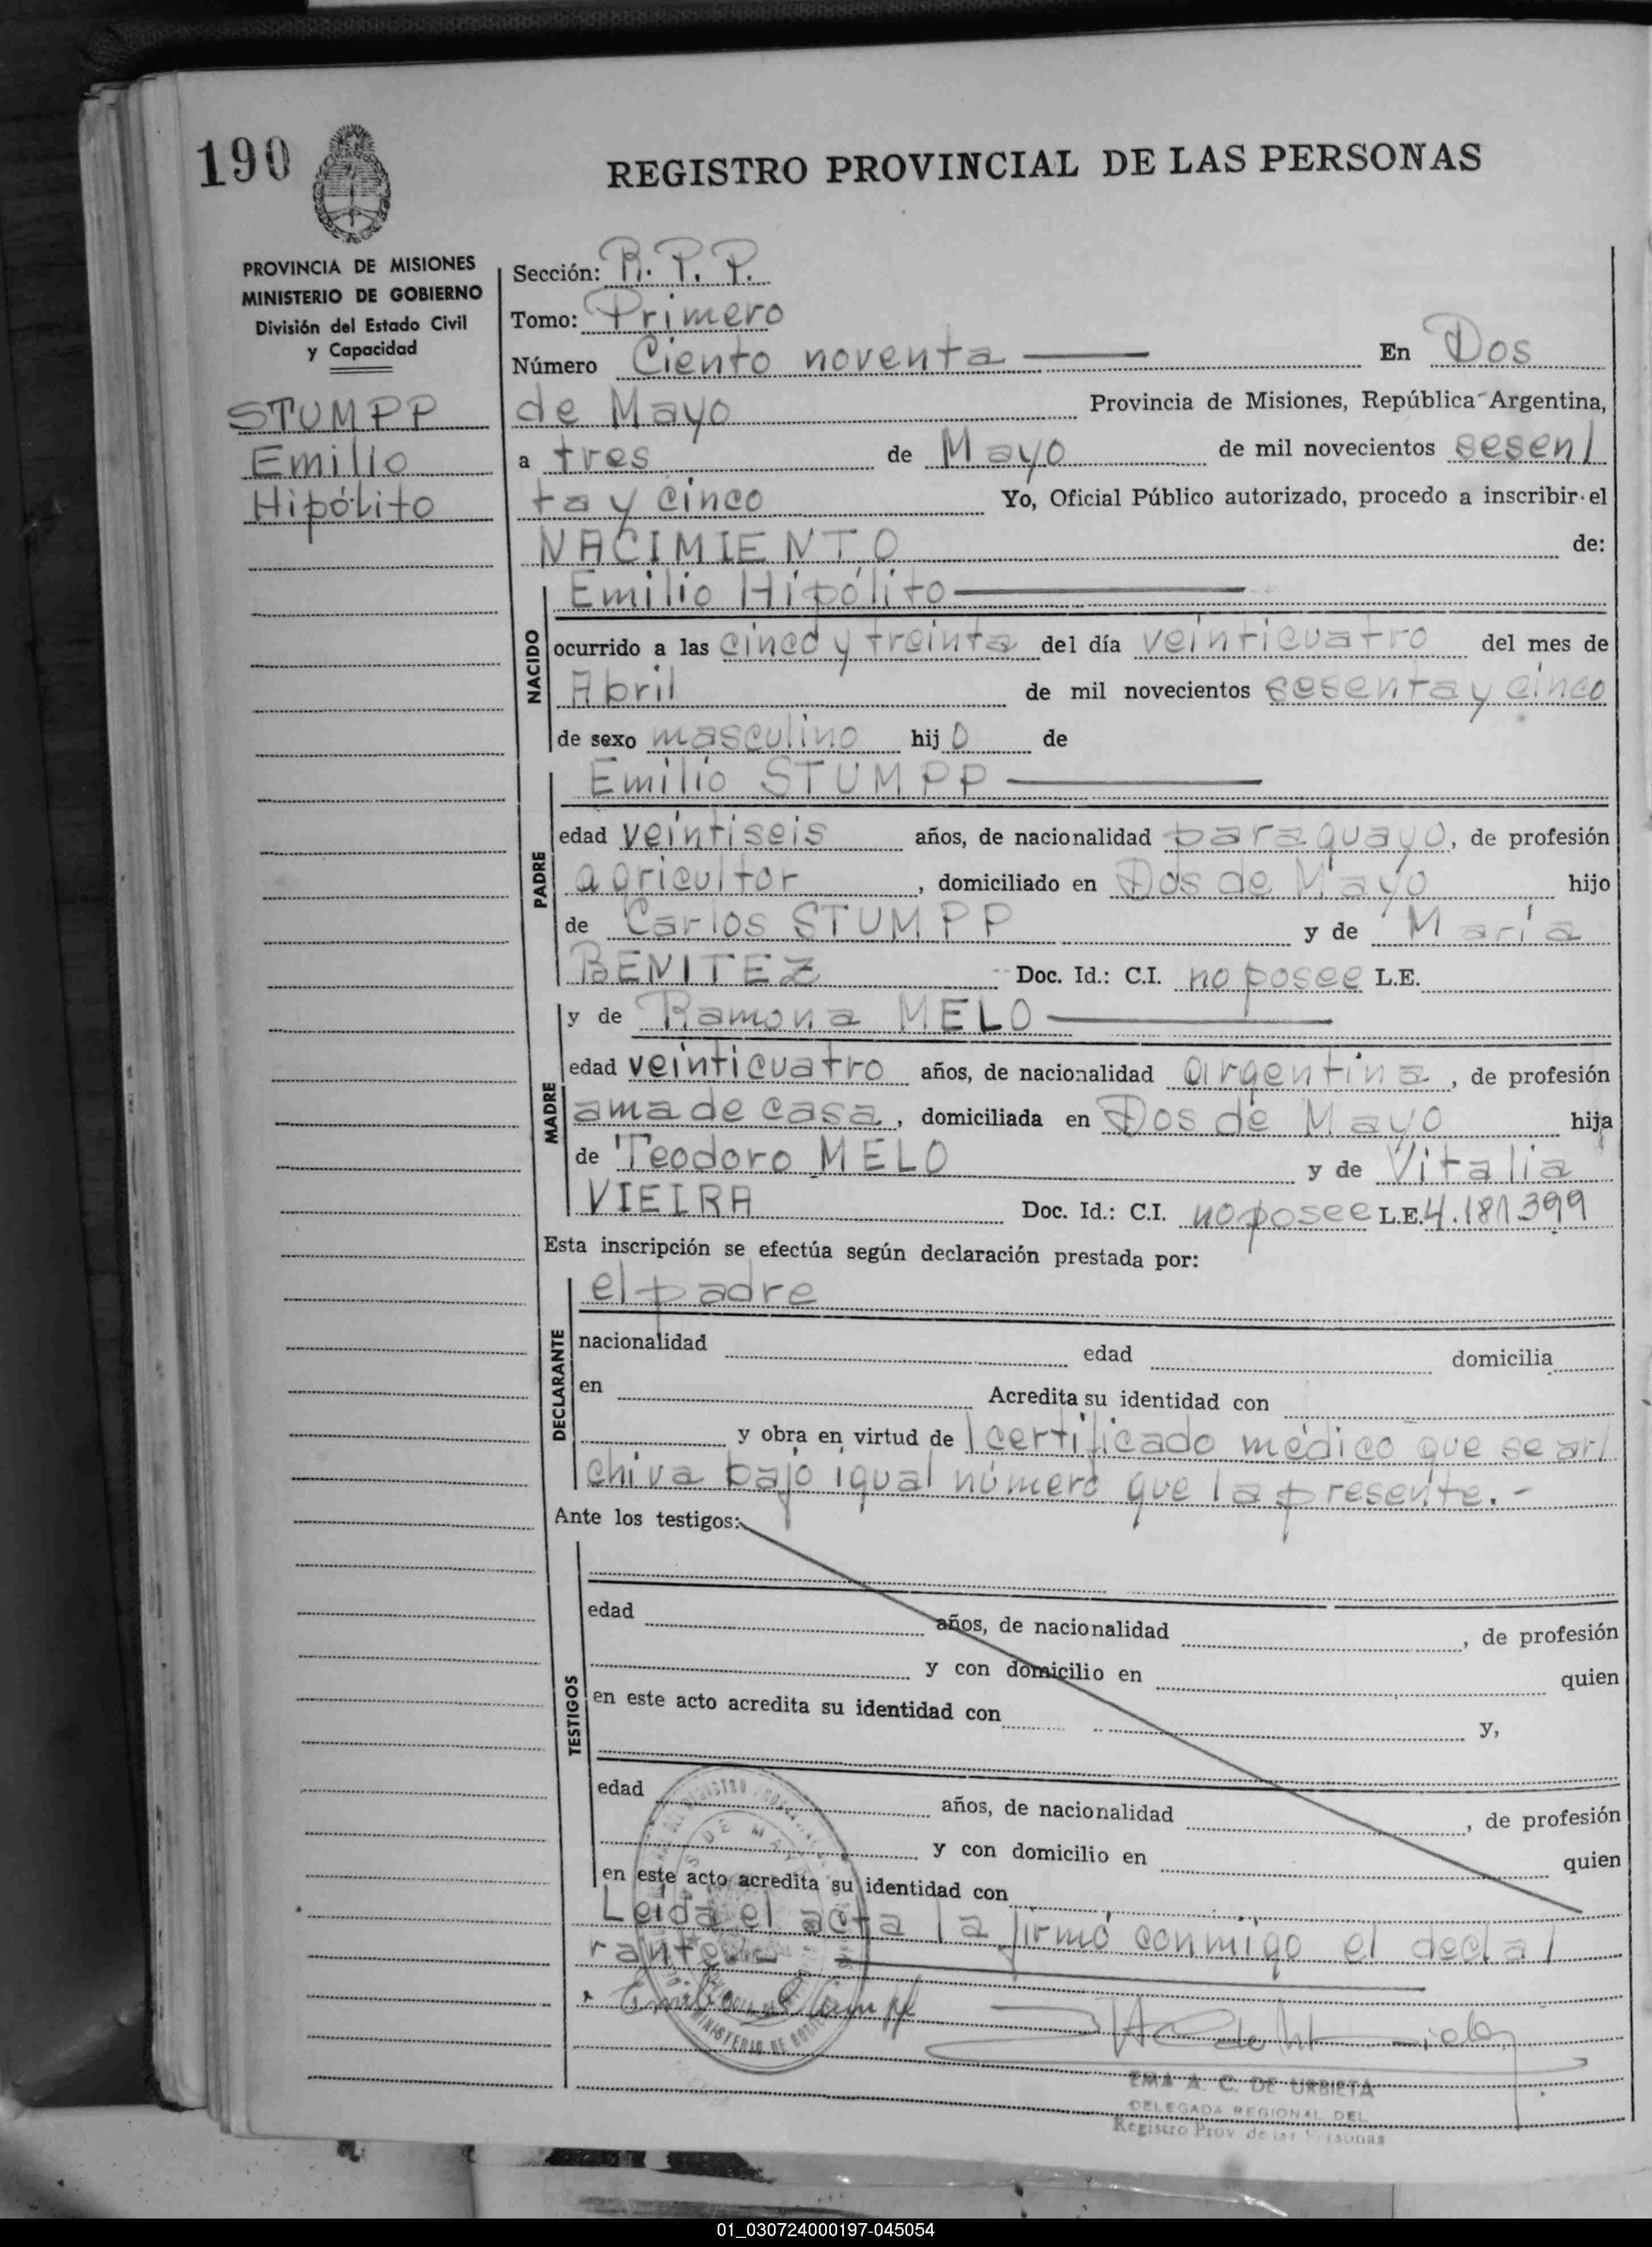 190
REGISTRO PROVINCIAL DE LAS PERSONAS
PROVINCIA DE MISIONES
MINISTERIO DE GOBIERNO
División del Estado Civil
y Capacidad
STUMPP
Emilio
Hipólito
Sección: R. P. P.
Tomo: Primero
Número Ciento noventa En Dos
de Mayo Provincia de Misiones, República Argentina,
a tres de Mayo de mil novecientos sesen/
ta y cinco Yo, Oficial Público autorizado, procedo a inscribir el
NACIMIENTO de:
NACIDO
Emilio Hipólito
ocurrido a las cinco y treinta del día veinticuatro del mes de
Abril de mil novecientos sesenta y cinco
de sexo masculino hijo de
PADRE
Emilio STUMPP
edad veintiseis años, de nacionalidad paraguayo, de profesión
agricultor, domiciliado en Dos de Mayo hijo
de Carlos STUMPP y de María
BENITEZ Doc. Id.: C.I. no posee L.E.
MADRE
y de Ramona MELO
edad veinticuatro años, de nacionalidad argentina, de profesión
ama de casa, domiciliada en Dos de Mayo hija
de Teodoro MELO y de Vitalia
VIEIRA Doc. Id.: C.I. no posee L.E. 4.181399
Esta inscripción se efectúa según declaración prestada por:
DECLARANTE
el padre
nacionalidad edad domicilia
en Acredita su identidad con
y obra en virtud de / certificado médico que se ar/
chiva bajo igual número que la presente.-
Ante los testigos:
TESTIGOS
edad años, de nacionalidad , de profesión
y con domicilio en quien
en este acto acredita su identidad con y,
edad años, de nacionalidad , de profesión
y con domicilio en quien
en este acto acredita su identidad con
Leída el acta la firmó conmigo el decla/
rante.-
Emilio Stumpf
EMA A. C. DE URBIETA
DELEGADA REGIONAL DEL
Registro Prov. de las Personas
MINISTERIO DE
01_030724000197-045054